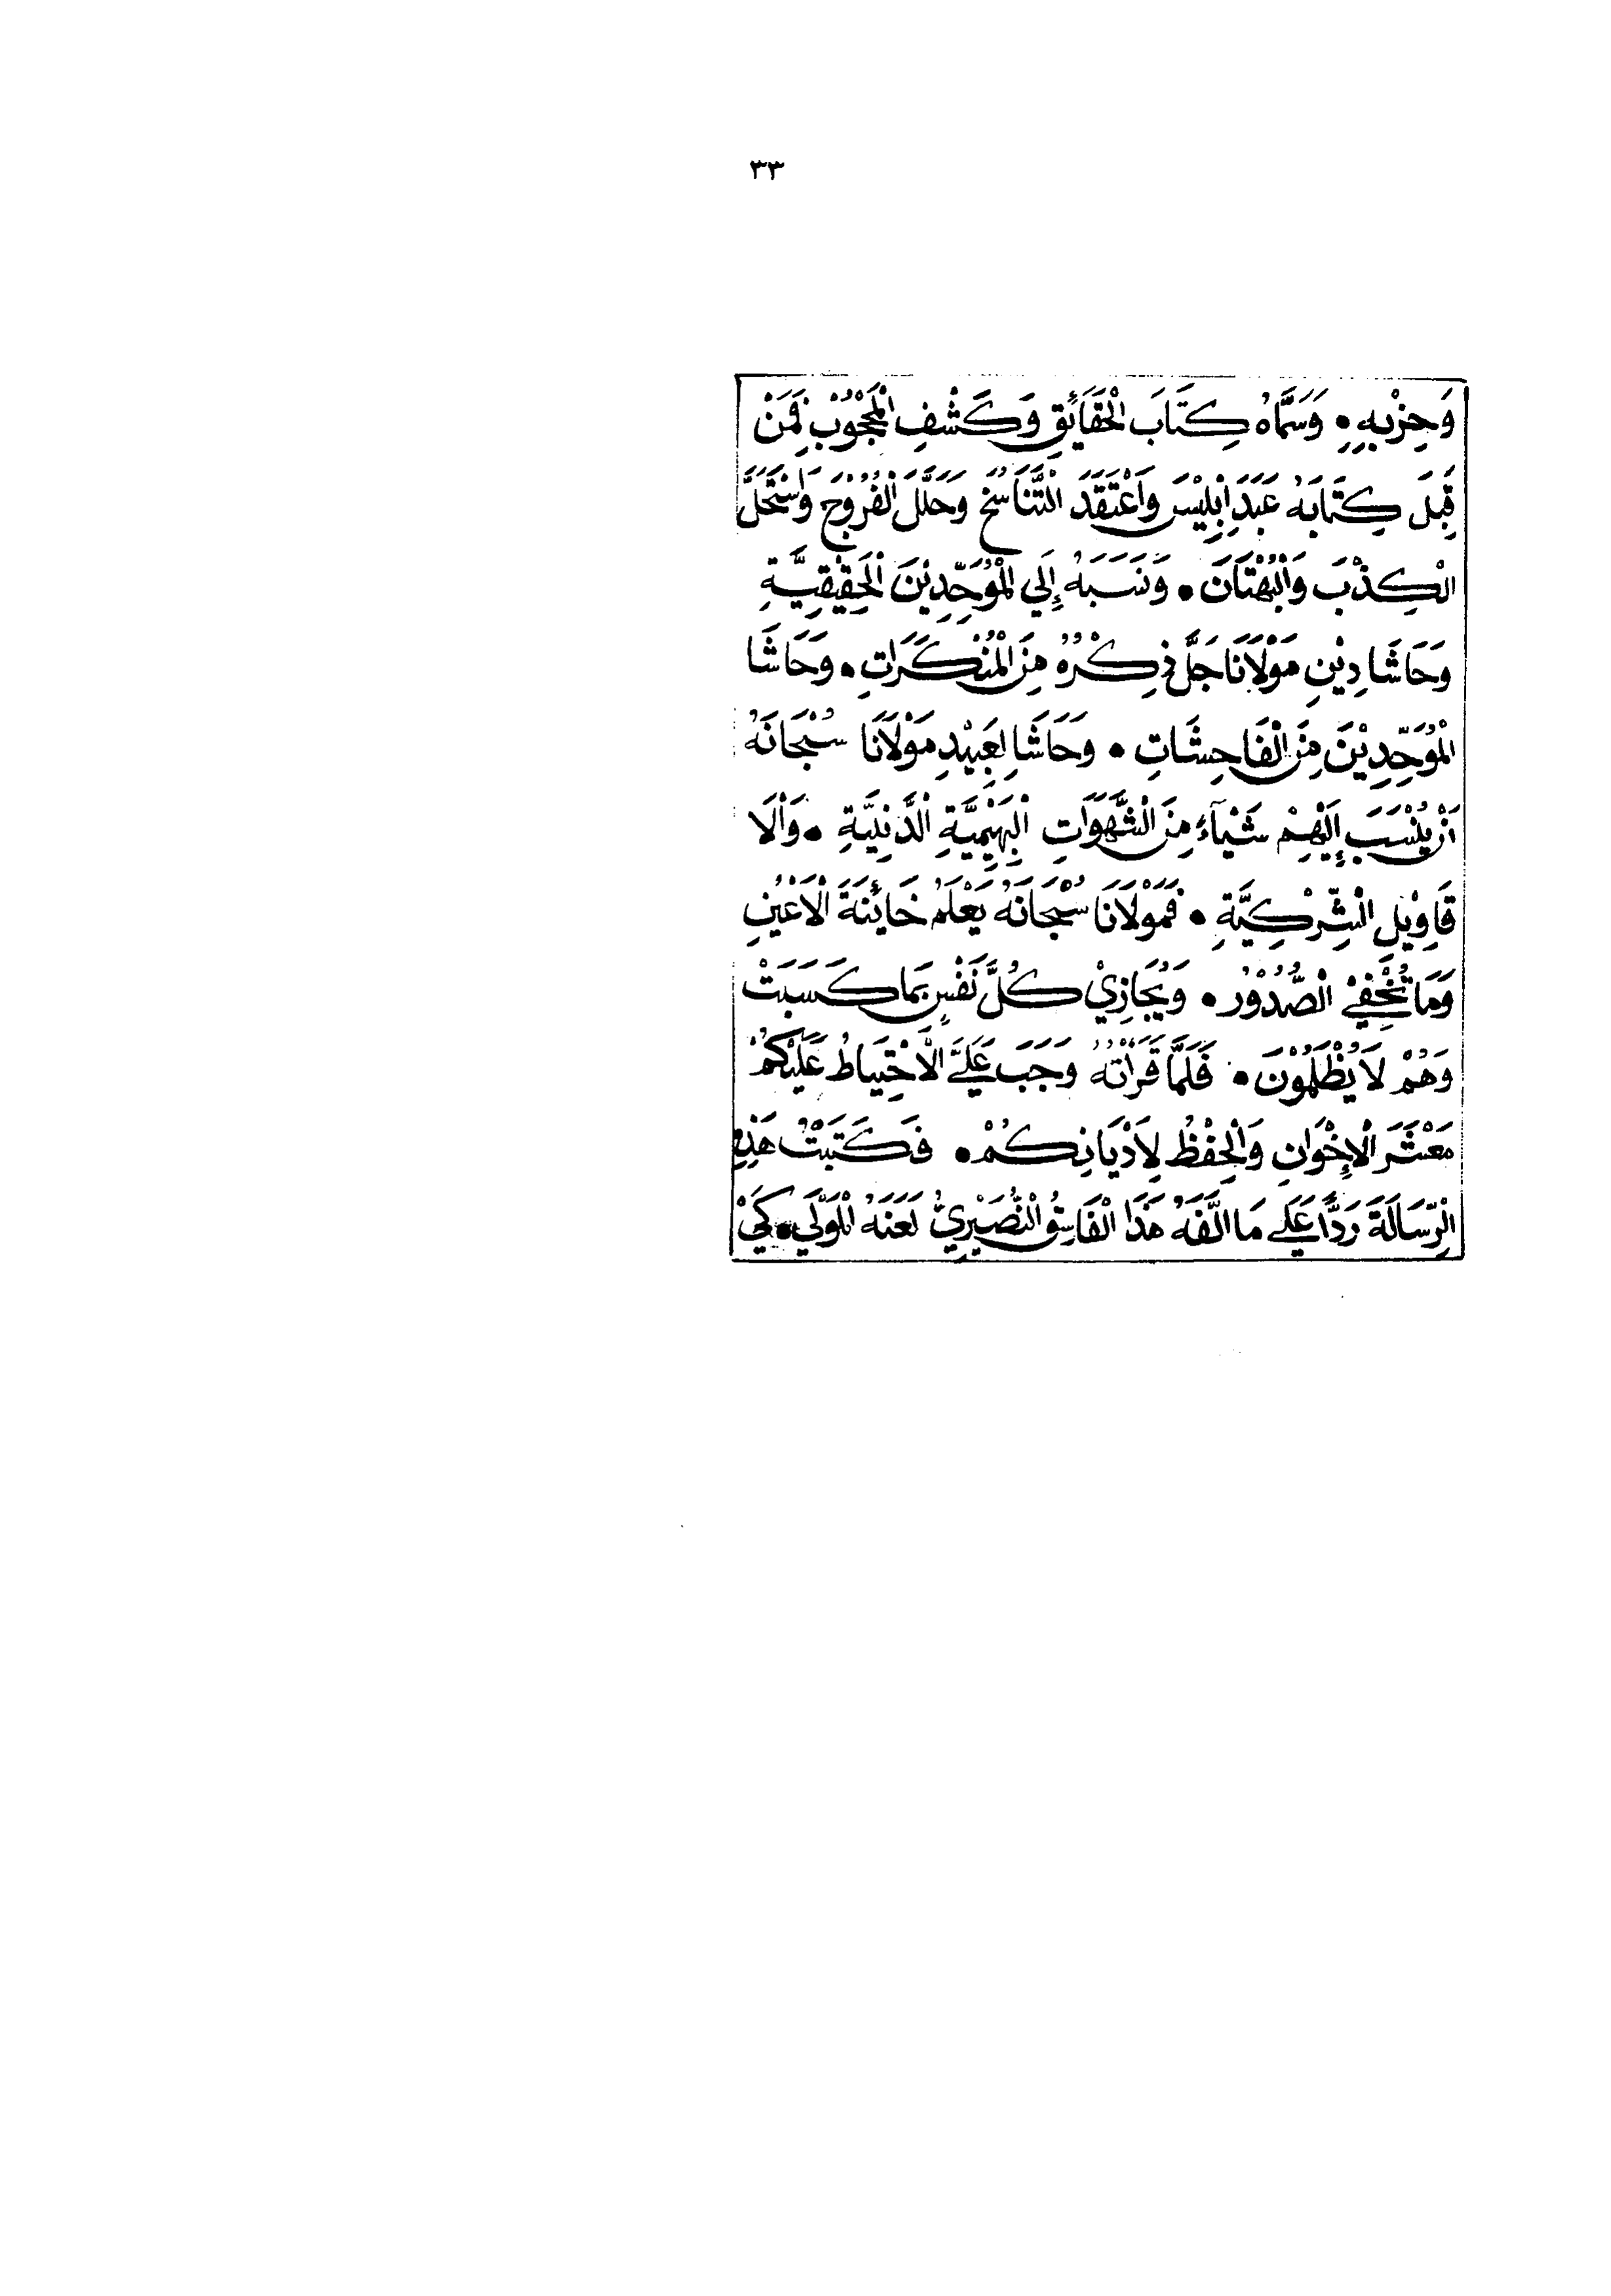 ٣٣
وَحِزْبِهِ • وَسَمَّاهُ كِتَابَ الْحَقَائَقِ وَكَشْفِ الْمَحْجُوْبِ فَمَنْ
قَبِلَ كِتَابَهُ عَبَدَ اِبْلِيْسَ وَاَعْتَقَدَ الْتَّنَاسُخَ وَحَلَّلَ الْفُرُوْجَ وَاسْتَحَلَّ
الْكِذْبَ وَالْبُهْتَانَ • وَنَسَبَهُ إِلَي الْمُوَحِّدِيْنَ الْحَقِيْقِيَّةِ
وَحَاشَا دِيْنِ مَوْلَانَا جَلَّ ذِكْرُهُ مِنَ الْمُنْكَرَاتِ • وَحَاشَا
الْمُوَحِّدِيْنَ مِنَ الْفَاحِشَاتِ • وَحَاشَا لِعَبِيْدِ مَوْلَانَا سُبْحَانَهُ
اَنْ يُنْسَبَ إِلَيْهِمْ شَيْآءً مِنَ الْشَّهَوَاتِ الْبَهِيْمِيَّةِ الْدَّنِيَّةِ • وَالْاَ
قَاوِيْلِ الْشِّرْكِيَّةِ • فَمَوْلَانَا سُبْحَانَهُ يَعْلَمُ خَائَنَةَ الْاَعْيُنِ
وَمَا تُخْفِيْ الْصُّدُوْرُ • وَيُجَازِيْ كُلَّ نَفْسٍ بِمَا كَسَبَتْ
وَهُمْ لَا يُظْلَمُوْنَ • فَلَمَّا قَرَاْتُهُ وَجَبَ عَلَيَّ الْاَحْتِيَاطُ عَلَيْكُمْ
مَعْشَرَ الْإِخْوَانِ وَالْحِفْظُ لِاَدْيَانِكُمْ • فَكَتَبْتُ هَذِهِ
الْرِّسَالَةَ رَدًّا عَلَي مَا الَّفَهُ هَذَا الْفَاسِقُ الْنُّصَيْرِيُّ لَعَنَهُ الْمَوْلَي • كَيْ